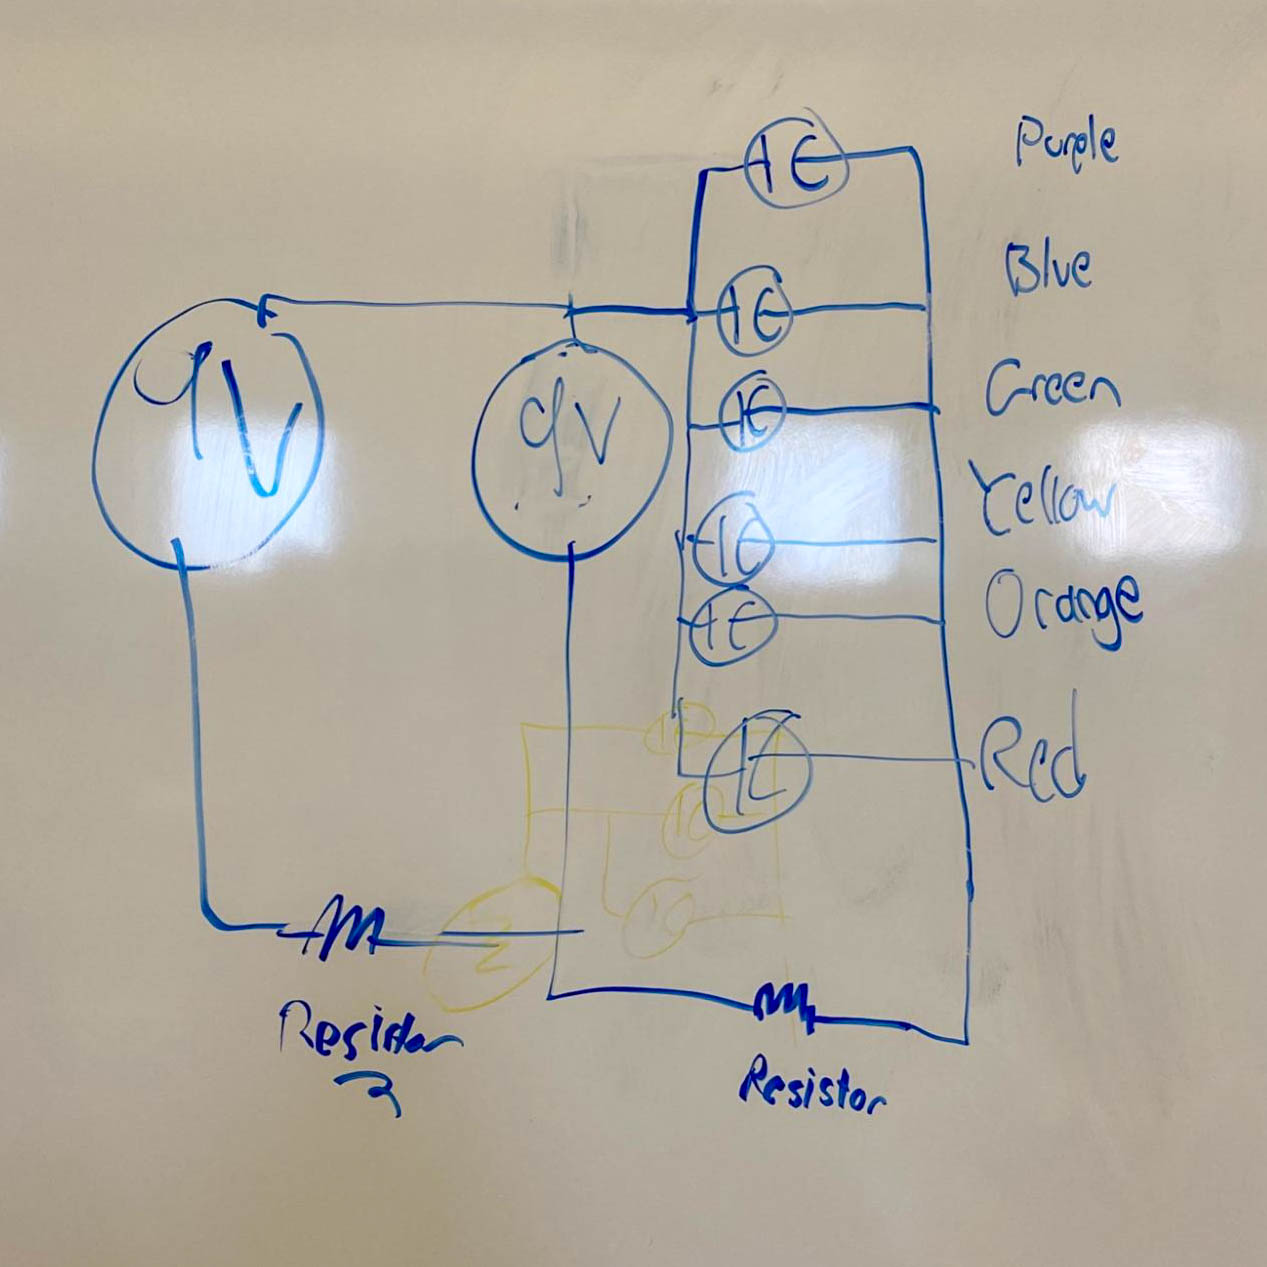 Purple
Blue
9V
9V
Green
Yellow
Orange
Red
Resistor
2
Resistor